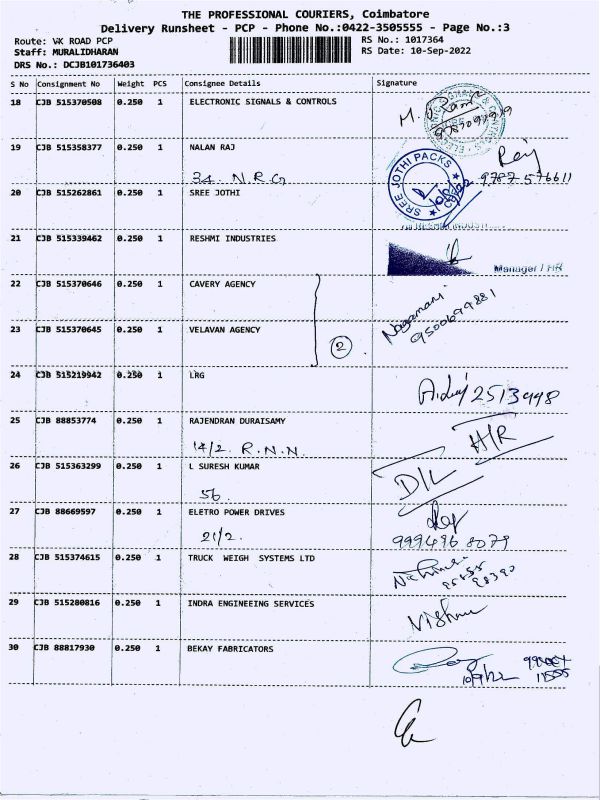 THE PROFESSIONAL COURIERS, Coimbatore
Delivery Runsheet - PCP - Phone No.:0422-3505555 - Page No.:3
Route: VK ROAD PCP
Staff: MURALIDHARAN
DRS No.: DCJB101736403
RS No.: 1017364
RS Date: 10-Sep-2022
S No Consignment No Weight PCS Consignee Details Signature
18 CJB 515370508 0.250 1 ELECTRONIC SIGNALS & CONTROLS
19 CJB 515358377 0.250 1 NALAN RAJ
34. N.R.G 9787 576611
20 CJB 515262861 0.250 1 SREE JOTHI
SREE JOTHI PACKS
21 CJB 515339462 0.250 1 RESHMI INDUSTRIES
Manager / HR
22 CJB 515370646 0.250 1 CAVERY AGENCY
Nagamani
9500699881
23 CJB 515370645 0.250 1 VELAVAN AGENCY
2
24 CJB 515219942 0.250 1 LRG
2513448
25 CJB 88853774 0.250 1 RAJENDRAN DURAISAMY
14/2. R.N.N. H/R
26 CJB 515363299 0.250 1 L SURESH KUMAR
56. D/L
27 CJB 88669597 0.250 1 ELETRO POWER DRIVES
21/2. 999496 8079
28 CJB 515374615 0.250 1 TRUCK WEIGH SYSTEMS LTD
29 CJB 515280816 0.250 1 INDRA ENGINEEING SERVICES
Vishnu
30 CJB 88817930 0.250 1 BEKAY FABRICATORS
10/9/22